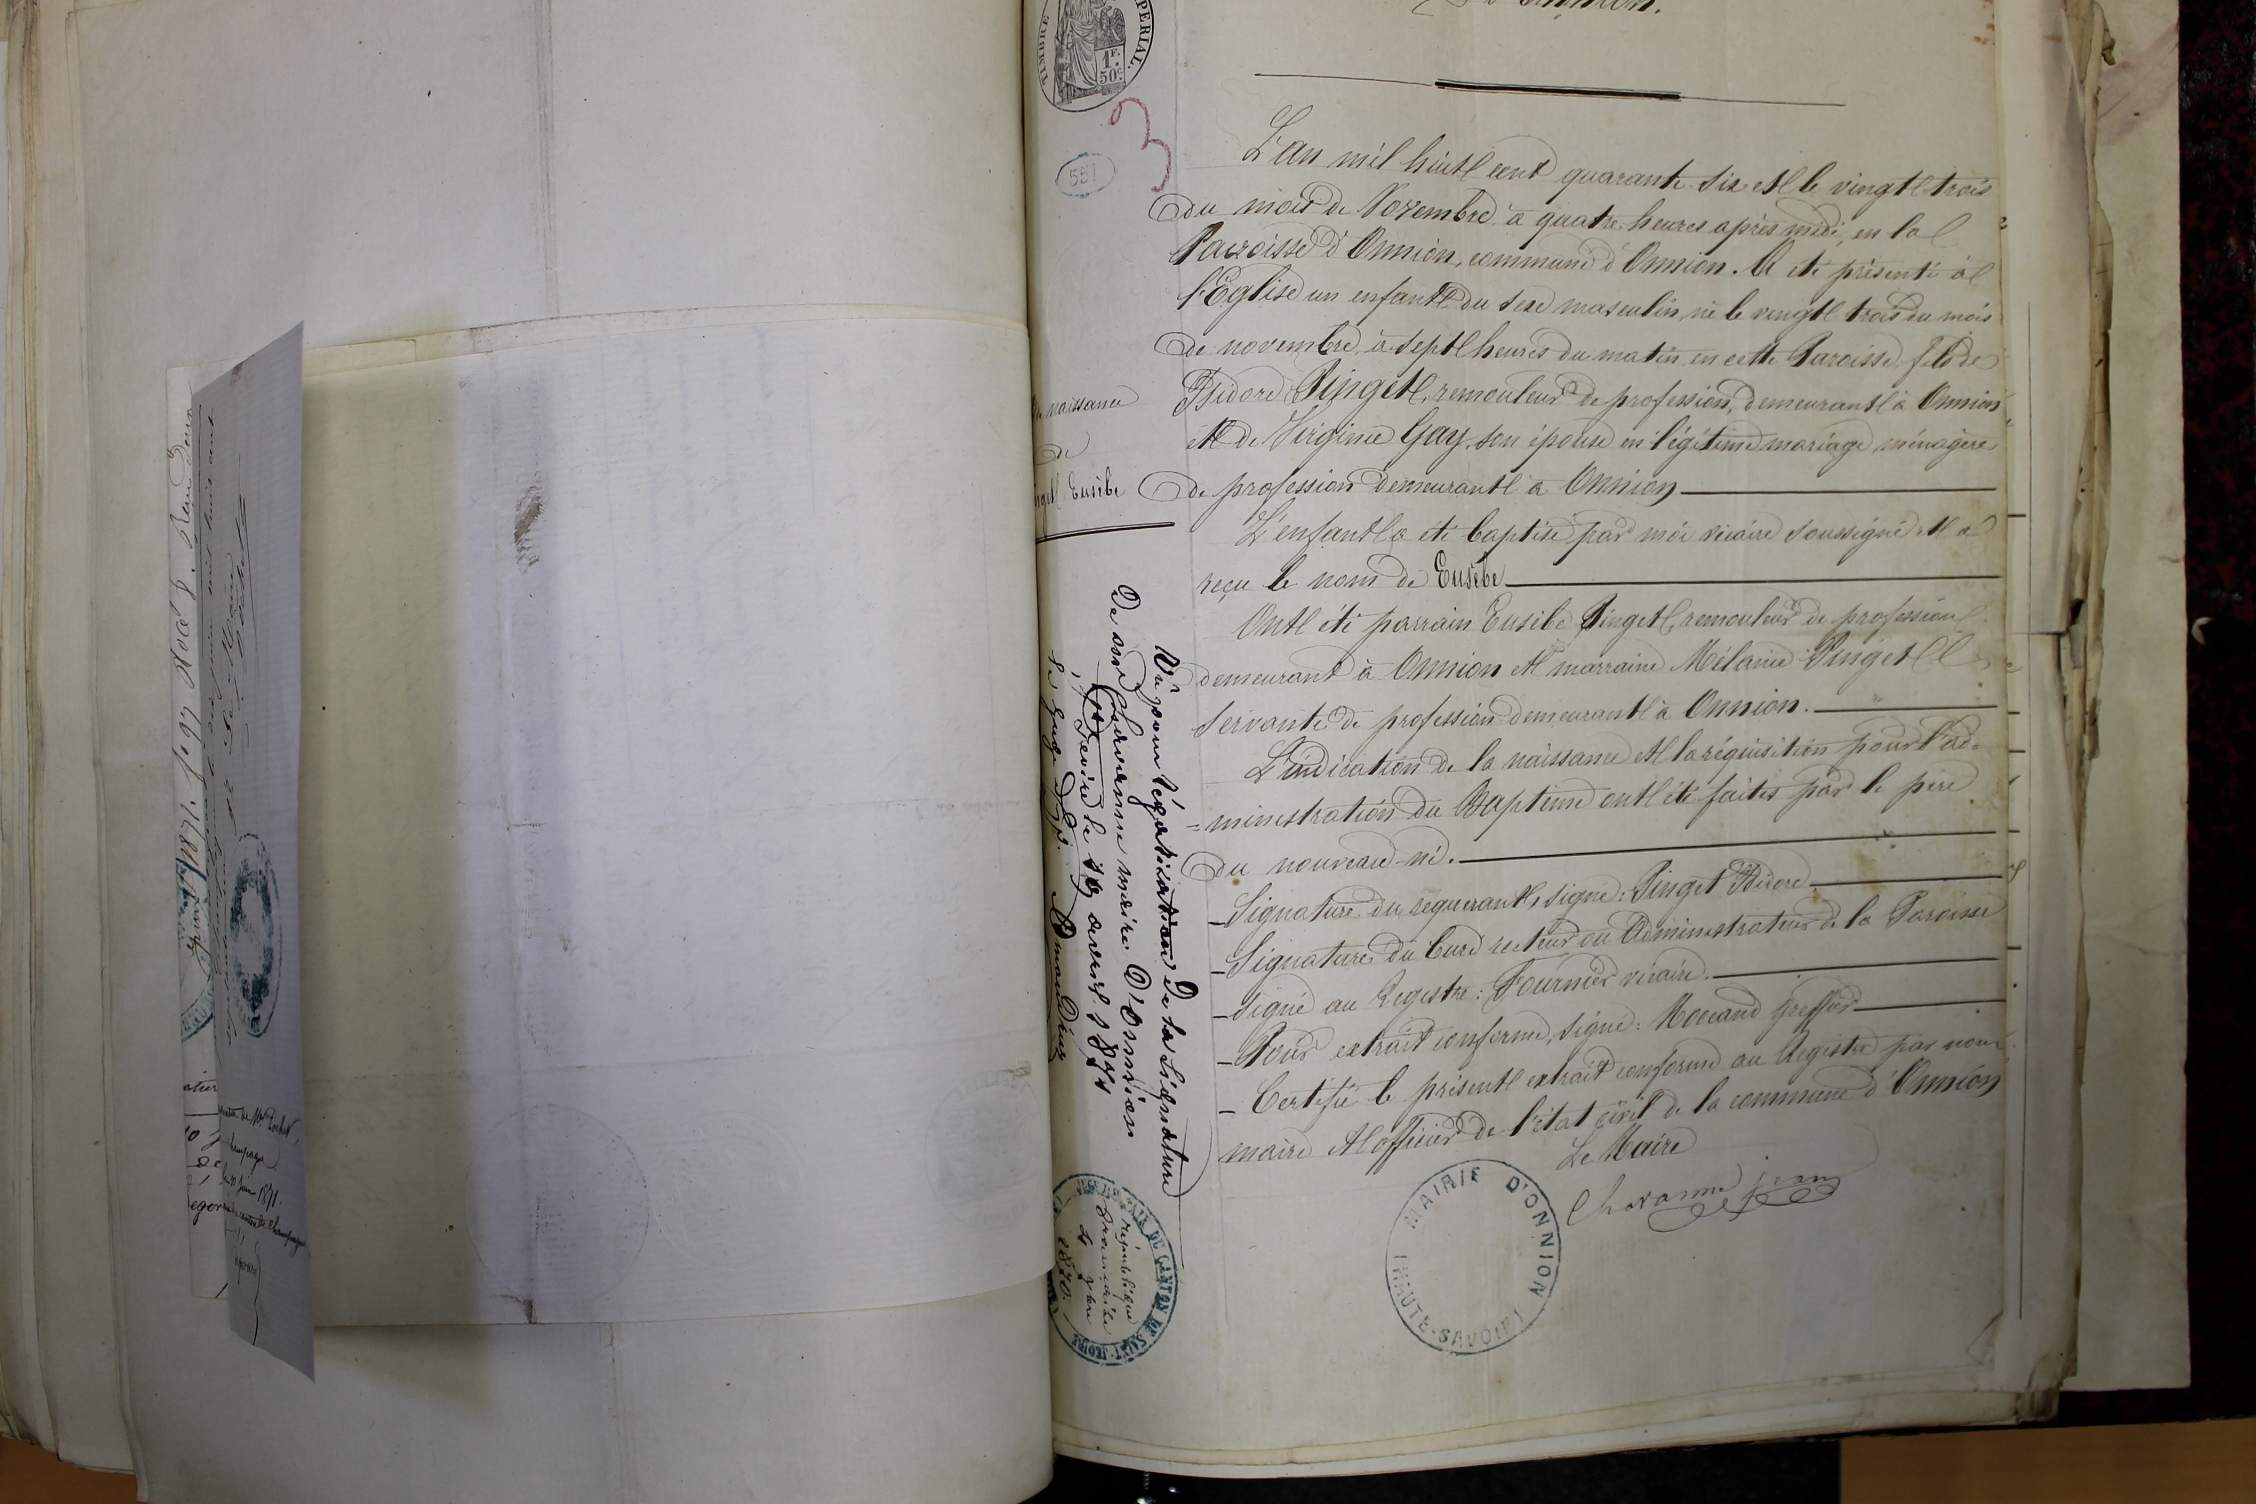 L'an mil huit cent quarante six et le vingt trois
du mois de Novembre à quatre heures après midi, en la
Paroisse d'Onnion, commune d'Onnion. A été présenté à
l'Eglise un enfant du sexe masculin né le vingt trois du mois
de novembre à sept heures du matin en cette Paroisse fils de
Isidore Pinget, remouleur de profession, demeurant à Onnion
et de Virginie Gay, son épouse en légitime mariage, ménagère
de profession demeurant à Onnion
L'enfant a été baptisé par moi vicaire soussigné et a
reçu le nom de Eusèbe
Ont été parrain Eusèbe Pinget, remouleur de profession
demeurant à Onnion et marraine Mélanie Pinget
servante de profession demeurant à Onnion.
L'indication de la naissance et la réquisition pour l'ad-
=ministration du Baptême ont été faites par le père
du nouveau-né.
Signature du requérant, signé: Pinget Isidore
Signature du Curé recteur ou Administrateur de la Paroisse
signé au Registre: Fournier vicaire.
Pour extrait conforme, signé: Moccand Greffier
Certifié le présent extrait conforme au Registre par nous
maire et officier de l'état civil de la commune d'Onnion
Le Maire
Chavanne Jean
MAIRIE D'ONNION
(HAUTE-SAVOIE)
naissance
de
Eusèbe
551
3
TIMBRE
1F.
50c.
Vu pour légalisation de la signature
De Chavanne maire D'Onnion
le 19 avril 1871
Le Juge
DU CANTON DE SAINT JEOIRE
République
française
1870
1871. f° 97
Le Maire
juin 1871.